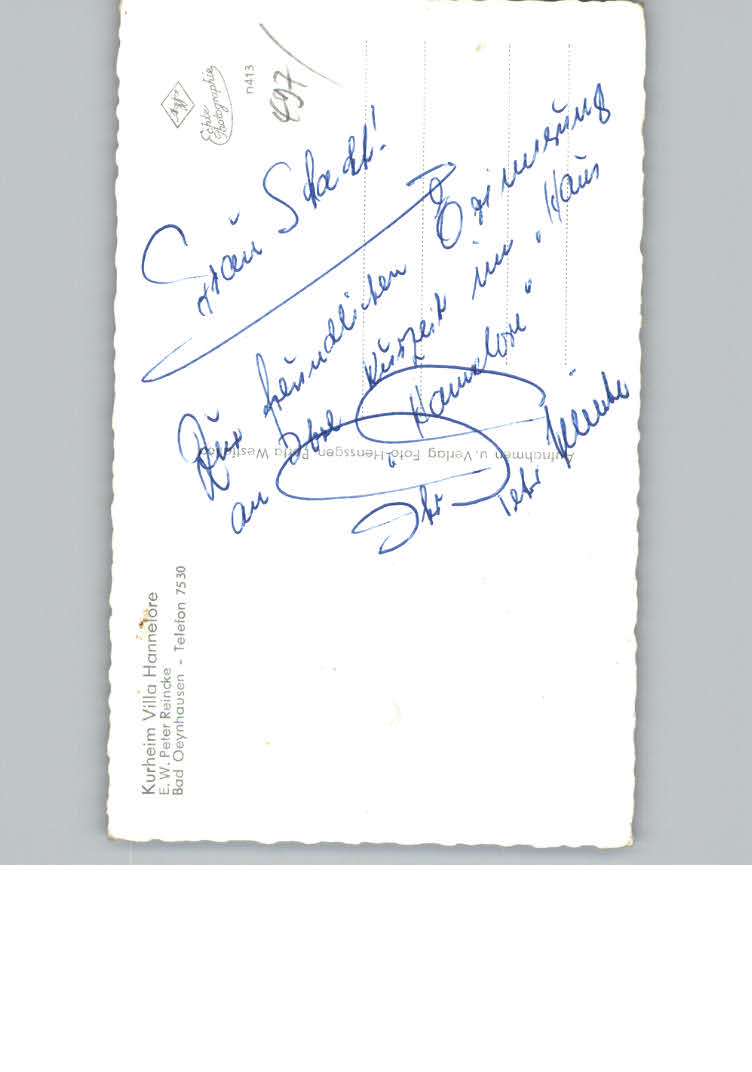 Kurheim Villa Hannelore
E. W. Peter Reincke
Bad Oeynhausen - Telefon 7530
Agfa
Echte
Photographie
n413
497/
Aufnahmen u. Verlag Foto-Henssgen, Porta Westfalica
Frau Schacht!
Zur freundlichen Erinnerung
an Ihre Kurzeit im "Haus
"Hannelore"
Ihr Peter Reincke